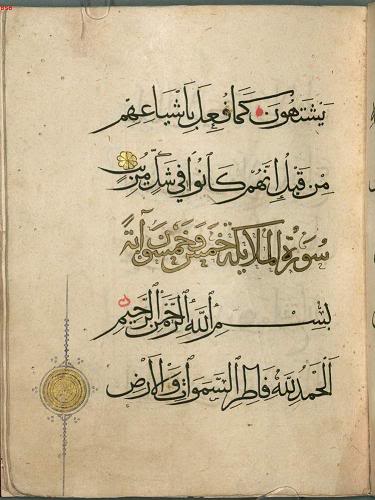 يشتهون كما فعل بأشياعهم
من قبل إنهم كانوا في شك مريب
سورة الملائكة خمس وخمسون آية
بسم الله الرحمن الرحيم
الحمد لله فاطر السموات والأرض